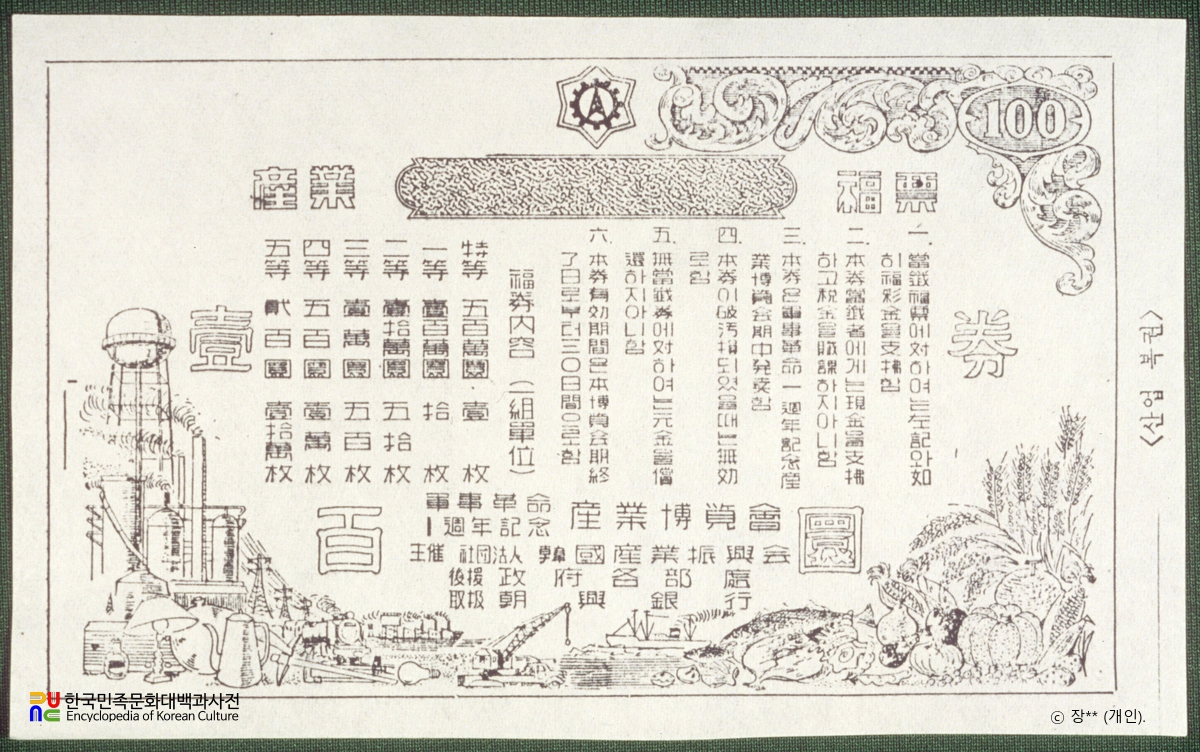 100
産業 福票
券
一. 當籤福費에対하여는左記와如
히福彩金을支拂함
二. 本券當籤者에게는現金을支拂
하고税金을賦課하지아니함
三. 本券은軍事革命一週年記念産
業博覽会期中発売함
四. 本券이破汚損되었을때는無効
로함
五. 無當籤券에対하여는元金을償
還하지아니함
六. 本券有効期間은本博覽会期終
了日로부터三○日間으로함
福券内容 (一組單位)
特等 五百萬圜 壹枚
一等 壹百萬圜 拾枚
二等 壹拾萬圜 五拾枚
三等 壹萬圜 五百枚
四等 五百圜 壹萬枚
五等 貳百圜 壹拾萬枚
壹百圜
軍事革命
一週年記念
産業博覽會
主催 社団法人 韓國産業振興会
後援 政府各部處
取扱 朝興銀行
<산업 복권>
한국민족문화대백과사전
Encyclopedia of Korean Culture
ⓒ 장** (개인).